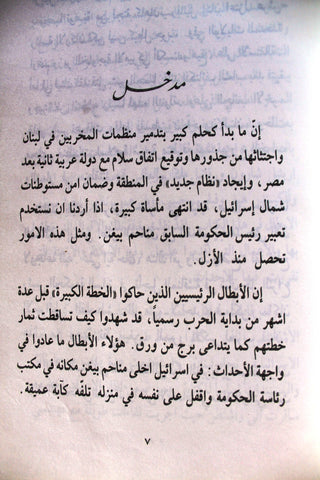 مدخل
إنّ ما بدأ كحلم كبير بتدمير منظمات المخربين في لبنان
واجتثاثها من جذورها وتوقيع اتفاق سلام مع دولة عربية ثانية بعد
مصر ، وإيجاد «نظام جديد» في المنطقة وضمان امن مستوطنات
شمال إسرائيل، قد انتهى مأساة كبيرة، اذا أردنا ان نستخدم
تعبير رئيس الحكومة السابق مناحم بيغن. ومثل هذه الامور
تحصل منذ الأزل.
إن الأبطال الرئيسيين الذين حاكوا «الخطة الكبيرة» قبل عدة
اشهر من بداية الحرب رسمياً، قد شهدوا كيف تساقطت ثمار
خطتهم كما يتداعى برج من ورق. هؤلاء الأبطال ما عادوا في
واجهة الأحداث: في اسرائيل اخلى مناحم بيغن مكانه في مكتب
رئاسة الحكومة واقفل على نفسه في منزله تلفّه كآبة عميقة .
٧